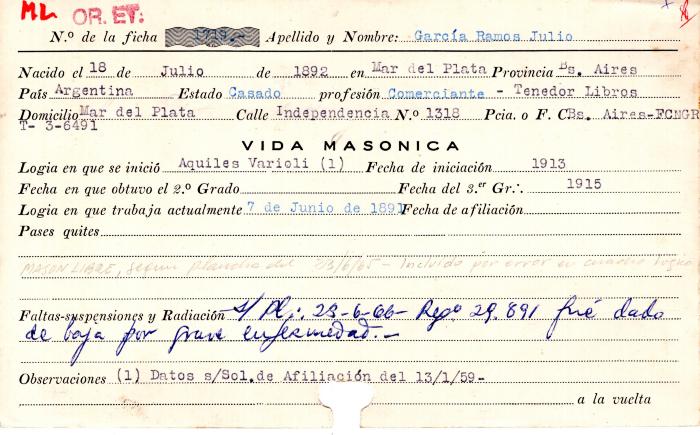 ML OR. ET.
N.º de la ficha 1719.- Apellido y Nombre: García Ramos Julio
Nacido el 18 de Julio de 1892 en Mar del Plata Provincia Bs. Aires
País Argentina Estado Casado profesión Comerciante - Tenedor Libros
Domicilio Mar del Plata Calle Independencia N.º 1318 Pcia. o F. C. Bs. Aires-FCNGR
T- 3-6491
VIDA MASONICA
Logia en que se inició Aquiles Varioli (1) Fecha de iniciación 1913
Fecha en que obtuvo el 2.º Grado Fecha del 3.er Gr∴ 1915
Logia en que trabaja actualmente 7 de Junio de 1891 Fecha de afiliación
Pases quites
MASON LIBRE, según plancha del 23/6/65 - Incluido por error en cuadro logia
Faltas-suspensiones y Radiación s/ Pl∴ 23-6-66- Regº 29.891 fué dado
de baja por grave enfermedad.-
Observaciones (1) Datos s/Sol. de Afiliación del 13/1/59-
a la vuelta